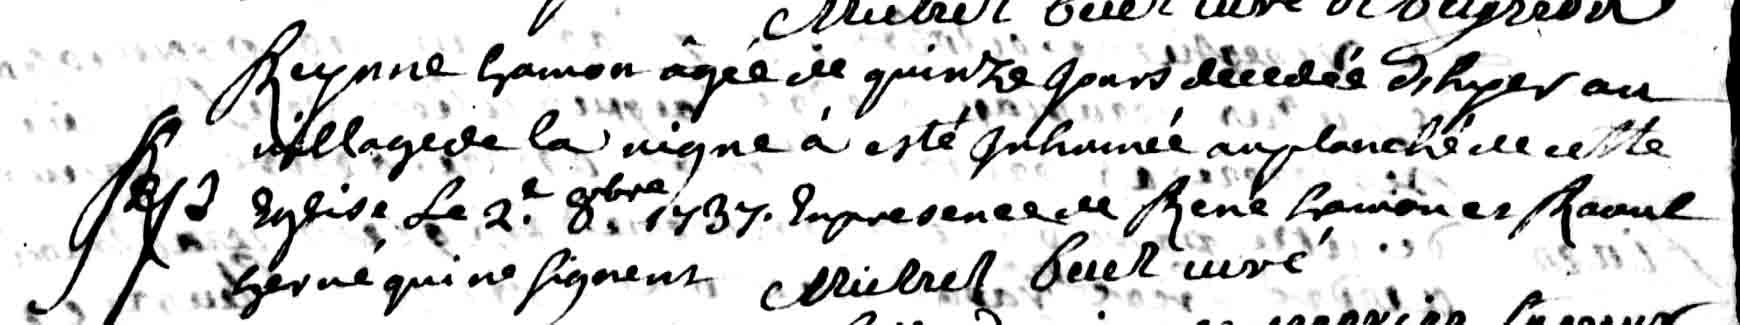 Michel Buet curé
Reynne hamon âgée de quinze jours decedée dhyer au
village de la vigne à esté Inhumée au planché de cette
Eglise Le 2.e 8bre 1737. En presence de René hamon et Raoul
hervé qui ne signent Michel Buet curé